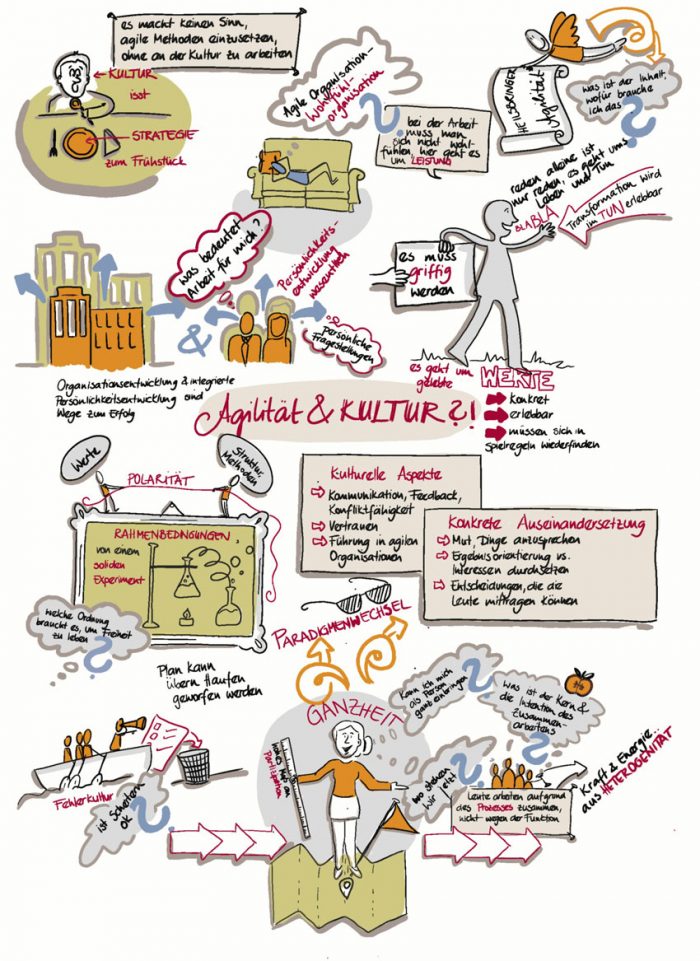 es macht keinen Sinn,
agile Methoden einzusetzen,
ohne an der Kultur zu arbeiten
KULTUR
isst
STRATEGIE
zum Frühstück
Agile Organisation-
Wohlfühl-
organisation
?
bei der Arbeit
muss man
sich nicht wohl-
fühlen, hier geht es
um LEISTUNG
HEILSBRINGER
"Agilität"
was ist der Inhalt,
wofür brauche
ich das
?
reden alleine ist
nur reden, es geht ums
Leben und Tun
BLABLA
Transformation wird
im TUN erlebbar
es muss
griffig
werden
was bedeutet
Arbeit für mich?
Persönlichkeits-
entwicklung
wesentlich
&
persönliche
Fragestellungen
Organisationsentwicklung & integrierte
Persönlichkeitsentwicklung sind
Wege zum Erfolg
es geht um
gelebte
WERTE
konkret
erlebbar
müssen sich in
Spielregeln wiederfinden
Agilität & KULTUR?!
Werte
Struktur,
Methoden
POLARITÄT
RAHMENBEDINGUNGEN,
von einem
soliden
Experiment
welche Ordnung
braucht es, um Freiheit
zu leben
?
Kulturelle Aspekte
Kommunikation, Feedback,
Konfliktfähigkeit
Vertrauen
Führung in agilen
Organisationen
Konkrete Auseinandersetzung
Mut, Dinge anzusprechen
Ergebnisorientierung vs.
Interessen durchsetzen
Entscheidungen, die die
Leute mittragen können
PARADIGMENWECHSEL
Plan kann
übern Haufen
geworfen werden
Fehlerkultur
ist Scheitern
OK
?
GANZHEIT
hohes Maß an
Partizipation
Kann ich mich
als Person
ganz einbringen
?
Was ist der Kern &
die Intention des
Zusammen-
arbeitens
?
wo stehen
wir jetzt
?
Leute arbeiten aufgrund
des Prozesses zusammen,
nicht wegen der Funktion
Kraft & Energie...
aus HETEROGENITÄT